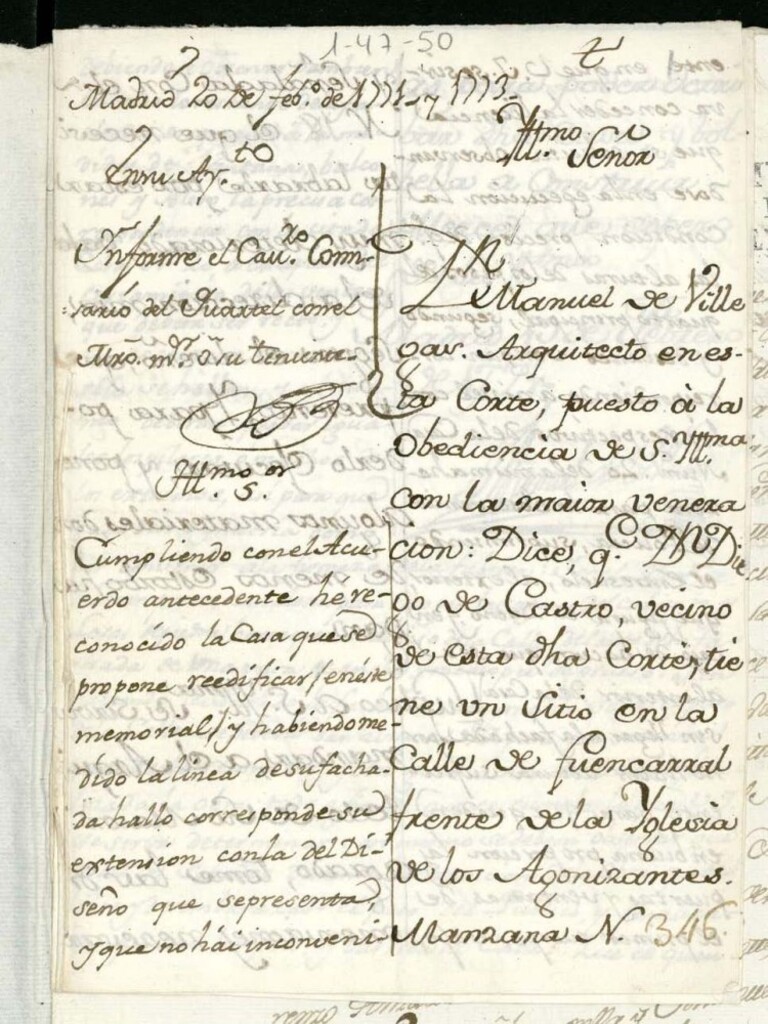 1-47-50
Madrid 20 de feb.º de 1771. y 1773.
En su Ay.to
Informe el Cav.ro Comi-
sario del Quartel con el
Mro. m.r o su teniente.
Ill.mo S.or
Cumpliendo con el Acu-
erdo antecedente he re-
conocido la Casa que se
propone reedificar / en éste
memorial / y habiendo me-
dido la linea de su facha-
da hallo corresponde su
extension con la del Di-
seño que se presenta,
y que no hái inconveni-
Ill.mo Señor
Dn Manuel de Ville
gas. Arquitecto en es-
ta Corte, puesto à la
Obediencia de S. Ill.ma
con la maior venera
cion: Dice, q.e Dn Die
go de Castro, vecino
de esta dha Corte, tie
ne un Sitio en la
Calle de fuencarral
frente de la Yglesia
de los Agonizantes.
Manzana N. 346